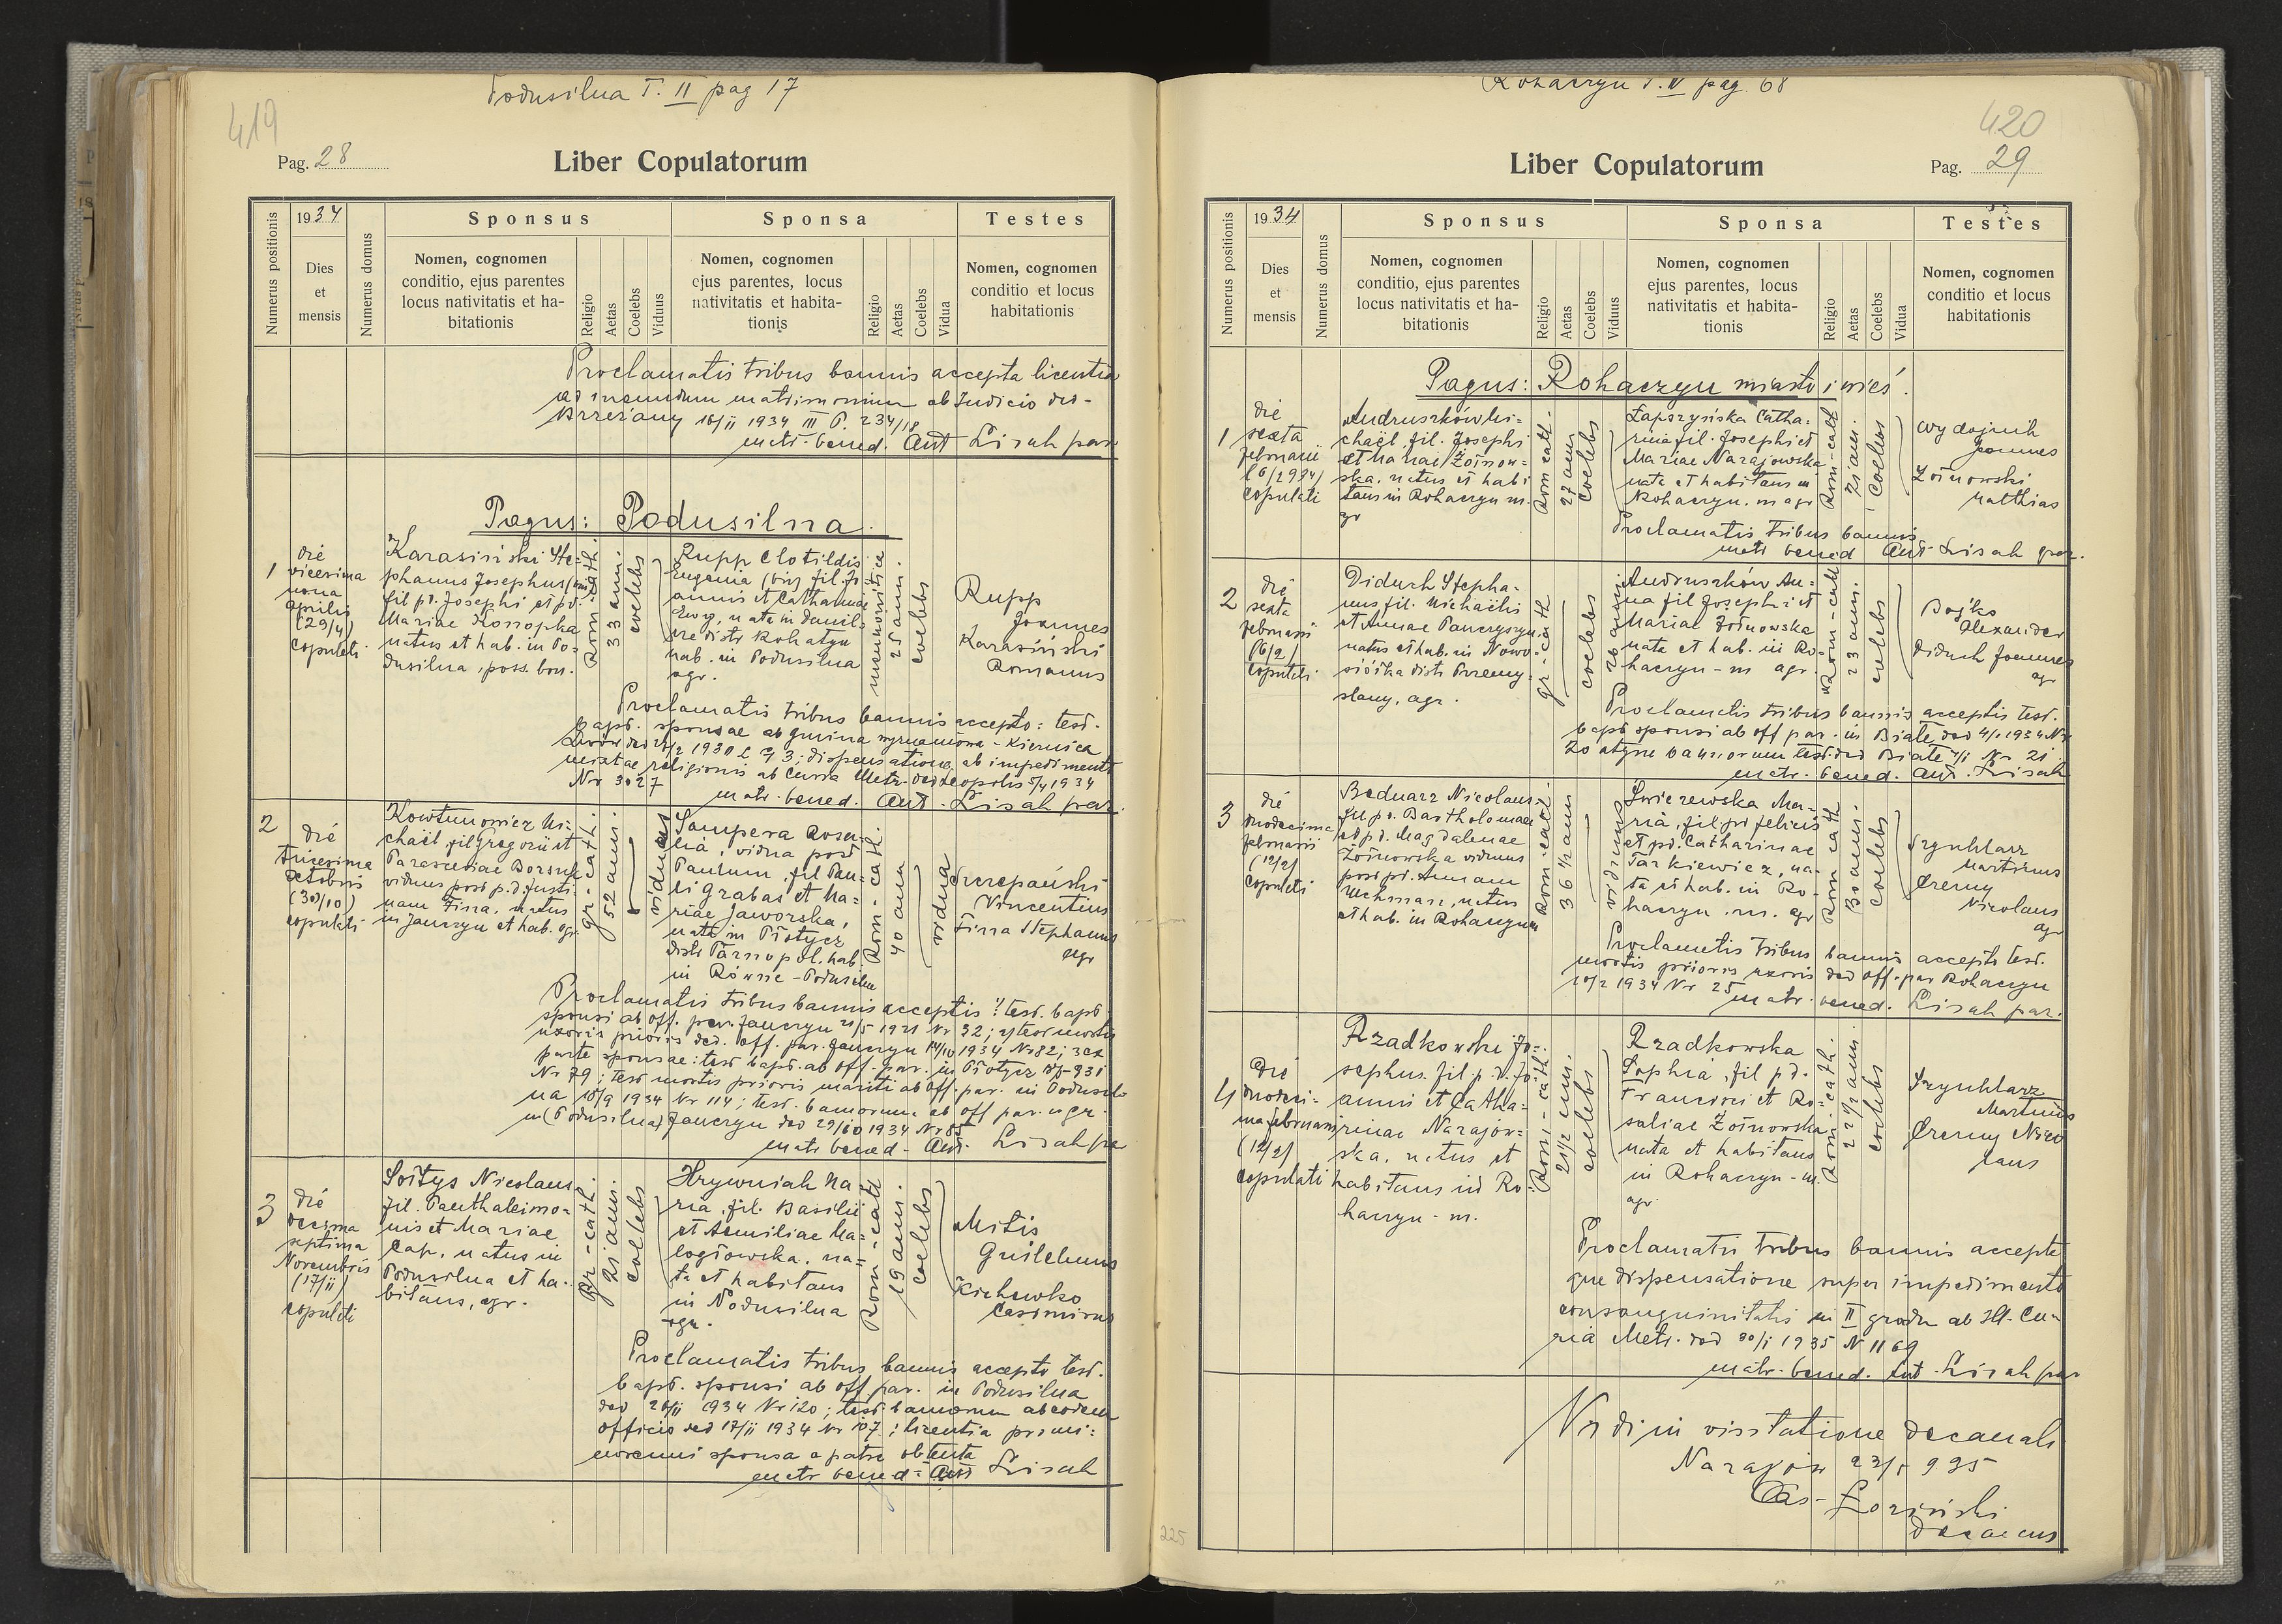 Podusilna T. II pag 17
419
Pag. 28
Liber Copulatorum
Numerus positionis
1934
Dies
et
mensis
Numerus domus
Sponsus
Nomen, cognomen
conditio, ejus parentes
locus nativitatis et ha-
bitationis
Religio
Aetas
Coelebs
Viduus
Sponsa
Nomen, cognomen
ejus parentes, locus
nativitatis et habita-
tionis
Religio
Aetas
Coelebs
Vidua
Testes
Nomen, cognomen
conditio et locus
habitationis
Proclamatis tribus bannis accepta licentia
ad ineundum matrimonium ab Judicio
Brzeżany 16/II 1934 III P. 234/18
matr. bened. Ant Lisak par
Pagus: Podusilna.
1
die
vicesima
nona
aprilis
(29/4)
copulati
Karasiński Ste-
phanus Josephus (bin)
fil pd. Josephi et pd.
Mariae Konopka
natus et hab. in Po-
dusilna, poss. bon.
Rom-cath.
33 ann.
coelebs
Rupp Clotildis
Eugenia (bin) fil. Jo-
annis et Catharinae
nata in
distr Rohatyn
hab. in Podusilna
agr.
25 ann.
coelebs
Rupp
Joannes
Karasiński
Romanus
Proclamatis tribus bannis accepto: test.
bapt. sponsae ab gmina wyznaniowa - Kiernica
Lwów 1930 L 93; dispensatione ab impedimento
mixtae religionis ab Curia Metr. ded Leopolis 5/4 1934
Nr 3027
matr. bened. Ant. Lisak par.
2
die
tricesima
octobris
(30/10)
copulati
Kowtunowicz Mi-
chaël, fil Gregorii et
Parasceviae
viduus post p.d. Justi-
nam Firra, natus
in Janczyn et hab. agr.
gr-cath.
52 ann.
viduus
Sampera Rosa-
lia, vidua post
Paulum, fil Pau-
li Grabas et Ma-
riae Jaworska,
nata in Płotycz
distr Tarnopol. hab.
in Równie - Podusilna
Rom-cath.
40 anna
vidua
Szczepański
Vincentius
Firra Stephanus
agr
Proclamatis tribus bannis acceptis 1/ test. bapt
sponsi ab off. par. Janczyn 21/5 1921 Nr 32; 2/ test mortis
uxoris prioris ded. off. par. Janczyn 14/10 1934 Nr 82; 3 ex
parte sponsae: test bapt. ab off. par. in Płotycz
Nr 79; test mortis prioris mariti ab off. par. in Podusil-
na 10/9 1934 Nr 114; test. bannorum ab off par.
in (Podusilna) Janczyn ded 29/10 1934 Nr 85
matr bened - Ant. Lisak pa
3
die
decima
septima
Novembris
(17/11)
copulati
Sołtys Nicolaus
fil. Panthaleimo-
nis et Mariae
Cap, natus in
Podusilna et ha-
bitans, agr.
Gr-cath.
21 ann.
coelebs
Hrywniak Ma-
ria, fil. Basilii
et Aemiliae Ma-
łogłowska, na-
ta et habitans
in Podusilna
agr.
Rom-cath
19 ann.
coelebs
Mitis
Guilelmus
Casimirus
Proclamatis tribus bannis accepto test.
bapt. sponsi ab off. par. in Podusilna
ded 1934 Nr 120; test. bannorum ab eodem
officio ded 17/11 1934 Nr 107; licentia pro mi-
norenni sponsa a patre obtenta
matr bened - Ant Lisak
Rohaczyn T. II pag. 68
420
Pag. 29
Liber Copulatorum
Numerus positionis
1934
Dies
et
mensis
Numerus domus
Sponsus
Nomen, cognomen
conditio, ejus parentes
locus nativitatis et ha-
bitationis
Religio
Aetas
Coelebs
Viduus
Sponsa
Nomen, cognomen
ejus parentes, locus
nativitatis et habita-
tionis
Religio
Aetas
Coelebs
Vidua
Testes
Nomen, cognomen
conditio et locus
habitationis
Pagus: Rohaczyn miasto i wieś.
1
die
sexta
februarii
(6/2 934)
copulati
Andruszków Mi-
chaël, fil. Josephi
et Mariae Żołnow-
ska, natus et habi
tans in Rohaczyn m.
gr
Rom cath.
27 ann
coelebs
Łapszyńska Catha-
rina fil. Josephi et
Mariae Narajowska
nata et habitans in
Rohaczyn. m agr
Rom-cath
21 ann.
Coelebs
Wydajnik
Joannes
Żołnowski
Matthias
Proclamatis tribus bannis
matr bened Ant Lisak par.
2
die
sexta
februarii
(6/2)
copulati
Diduch Stepha-
nus fil. Michaëlis
et Annae Panczyszyn
natus et hab. in Nowo-
siółka distr Przemy-
ślany, agr.
gr-cath
coelebs
26 anni
Andruszków An-
na fil Josephi et
Mariae Żołnowska
nata et hab. in Ro-
haczyn - m agr
Rom-cath
23 ann.
coelebs
Bojko
Alexander
Diduch Joannes
agr
Proclamatis tribus bannis acceptis test.
bapt sponsi ab off par. in Białe ded 4/1 1934 Nr
20 atque bannorum test. ded Białe Nr 21
matr. bened. Ant. Lisak
3
die
duodecima
februarii
(12/2)
copulati
Bednarz Nicolaus
fil pd. Bartholomaei
et pd. Magdalenae
Żołnowska viduus
post pd. Annam
natus
et hab. in Rohaczyn m
Rom-cath.
36 1/2 ann
viduus
Świerzewska Ma-
ria, fil. pd Felicis
et pd. Catharinae
Tarkiewicz, na-
ta et hab. in Ro-
haczyn. m. agr
Rom cath
30 ann.
coelebs
Szynklarz
Martinus
Czerny
Nicolaus
agr
Proclamatis tribus bannis accepto test.
mortis prioris uxoris ded off. par Rohaczyn
10/2 1934 Nr 25
matr. bened. Lisak par.
4
die
duodeci-
ma februarii
(12/2)
copulati
Rzadkowski Jo-
sephus. fil p.d. Jo-
annis et Catha-
rinae Narajow-
ska, natus et
habitans in Ro-
haczyn - m.
Rom-cath.
21 1/2 ann.
coelebs
Rzadkowska
Sophia, fil pd.
Francisci et Ro-
saliae Żołnowska
nata et habitans
in Rohaczyn - m.
agr.
Rom-cath.
22 1/2 ann
coelebs
Szynklarz
Martinus
Czerny Nico
laus
Proclamatis tribus bannis accepta
que dispensatione super impedimento
consanguinitatis in II gradu ab Ill. Cu-
ria Metr. ded 30/I 1935 N 1169
matr. bened. Ant. Lisak par
Vidi in visitatione decanali
Narajów 935
Łoziński
decanus
225